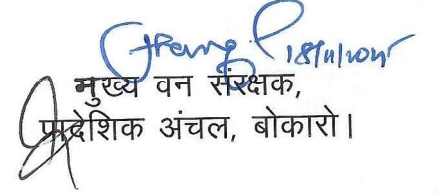 18/11/2015
मुख्य वन संरक्षक,
प्रादेशिक अंचल, बोकारो।